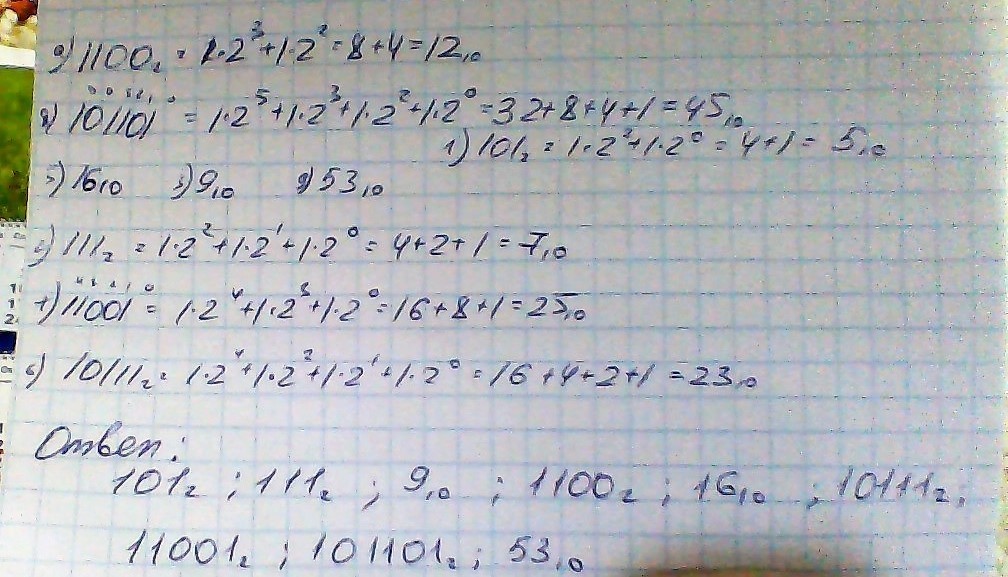 1100₂ = 1·2³+1·2² = 8+4 = 12₁₀
101101 = 1·2⁵+1·2³+1·2²+1·2⁰ = 32+8+4+1 = 45₁₀
1) 101₂ = 1·2²+1·2⁰ = 4+1 = 5₁₀
16₁₀ 9₁₀ 53₁₀
111₂ = 1·2²+1·2¹+1·2⁰ = 4+2+1 = 7₁₀
11001 = 1·2⁴+1·2³+1·2⁰ = 16+8+1 = 25₁₀
10111₂ = 1·2⁴+1·2²+1·2¹+1·2⁰ = 16+4+2+1 = 23₁₀
Ответ:
101₂ ; 111₂ ; 9₁₀ ; 1100₂ ; 16₁₀ ; 10111₂ ;
11001₂ ; 101101₂ ; 53₁₀